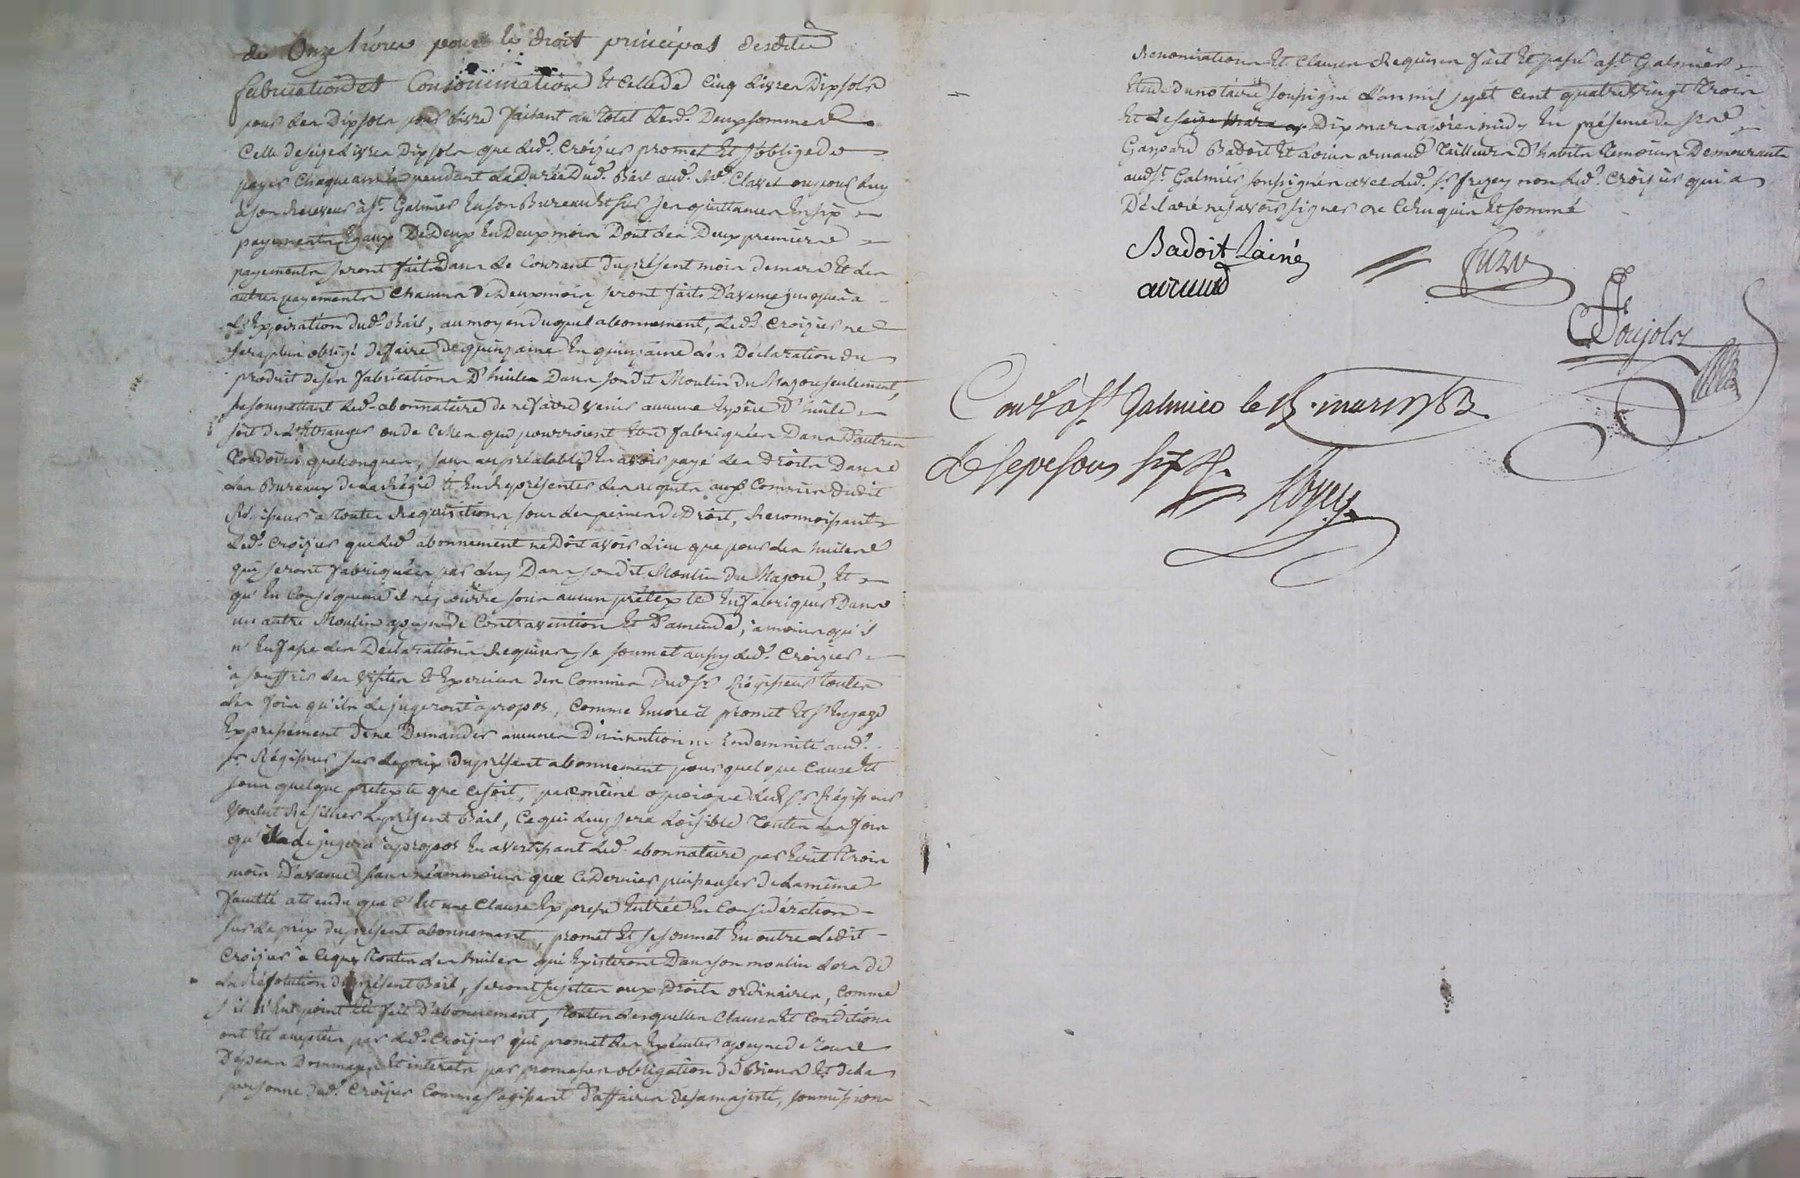 de Onze Livres pour le droit principal desdites
fabrication et Consommation Et Celle de Cinq Livres Dix sols
pour Les Dix sols pour Livre faisant au total Lesd. Deux sommes
Celle de seize Livres Dix sols que Led. Croizier promet Et s'oblige de
payer Chaque année pendant La Durée Dud. Bail aud. Clavel ou pour Luy
à son Receveur à St. Galmier En son Bureau Et sur ses quittances En six
payements Egaux De Deux En Deux mois Dont Les Deux premiers
payements seront faits Dans Le Courant Du présent mois de mars Et Les
autres payements Chacun De Deux mois seront faits D'avance jusques à
L'Expiration dud. Bail, au moyen duquel abonnement, Led. Croizier ne
sera plus obligé de faire de quinzaine En quinzaine Les Déclaration du
produit de ses fabrications D'huiles Dans son dit Moulin du Majou seulement,
se soumettant Led. abonnataire de ne faire venir aucune Espèce D'huile
soit de L'Etranger ou de Celles qui pourroient Etre fabriquées Dans D'autres
quelconques, sans au préalable En avoir payé Les Droits Dans
Les Bureaux de La Régie Et En représenter Les acquits aux Commis Dudit
Régisseur à toutes Requisitions sous Les peines de Droit, Reconnoissant
Led. Croizier que Led. abonnement ne Doit avoir Lieu que pour Les huiles
qui seront fabriquées par Luy Dans son dit Moulin Du Majou, Et
qu'En Conséquence il ne sous aucun prétexte En fabriquer Dans
un autre Moulin a peyne de Contravention Et D'amende, a moins qu'il
n'En fasse Les Déclarations Requises, se soumet aussy Led. Croizier
à souffrir Les visites Et Exercices Des Commis Dud. Sr. Régisseur toutes
Les fois qu'ils Le jugeront à propos, Comme Encore il promet Et s'Engage
Expressément De ne Demander aucunes Diminution ny Endemnité aud.
Sr. Régisseur sur Le prix Du présent abonnement pour quelque Cause Et
sous quelque pretexte que Ce soit, pas même quoique Led. Sr. Régisseur
voulut Resilier Le présent Bail, Ce qui Luy sera Loisible toutes Les fois
qu'il Le jugera à propos En avertissant Led. abonnataire par Ecrit trois
mois D'avance, sans néanmoins que Ce Dernier puisse user de La même
faculté attendu que C'Est une Clause Expresse Entrée En Considération
sur Le prix du présent abonnement, promet Et se soumet En outre Ledit
Croizier à Ce que toutes Les huiles qui Existeront Dans son moulin Lors de
La Résolution du présent Bail, seront sujettes aux Droits ordinaires, Comme
s'il n'Eut point Eté fait D'abonnement, toutes Lesquelles Clauses Et Conditions
ont Eté acceptées par Led. Croizier qui promet Les Exécuter a peyne de tous
Dépens Dommages Et intérêts par promesses obligation de Biens Et de La
personne dud. Croizier Comme s'agissant D'affaires de sa majesté, soumissions
Renonciations Et Clauses Requises fait Et passé a St. Galmier
Etude du notaire soussigné L'an mil sept Cent quatre vingt trois
Et Le seize mars Dix mars après midy En présence de sieurs
Gaspard Badoit Et Louis arnaud tailleurs D'habits temoins Demeurants
aud. St. Galmier soussignés avec Led. Sr. non Led. Croizier qui a
Déclaré ne savoir signer De Ce Enquis Et sommé
Badoit Lainé
arnaud
Poujols
Con. à St. Galmier le 15. mars 1783.